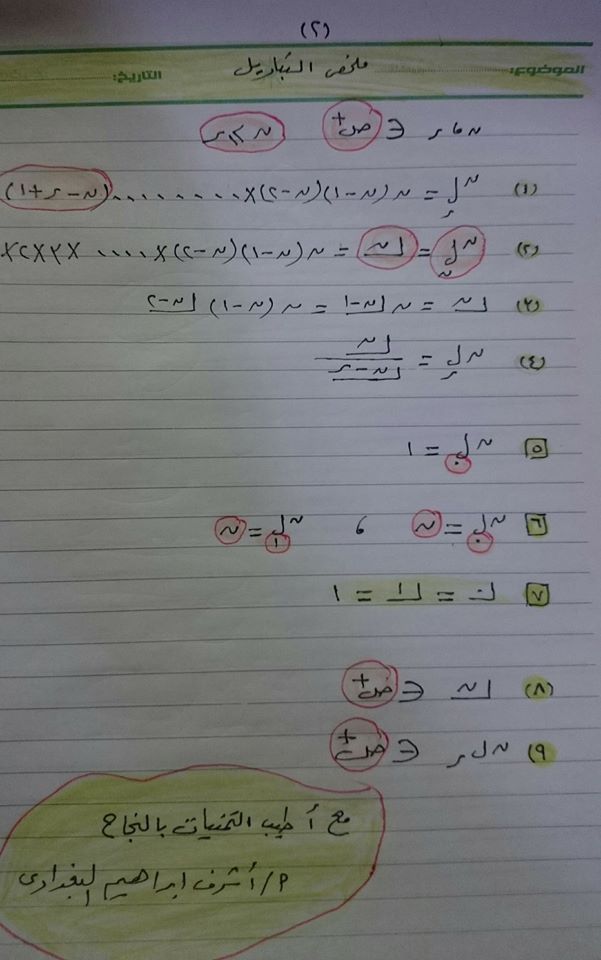 (٢)
الموضوع: ملخص التباديل التاريخ:
ن ، ر ∈ ص+ ن ≥ ر
(١) نلر = ن (ن-١)(ن-٢)×.........(ن-ر+١)
(٢) نلن = ⌊ن = ن (ن-١)(ن-٢)×....×٣×٢×١
(٣) ⌊ن = ن ⌊ن-١ = ن (ن-١) ⌊ن-٢
(٤) نلر = ⌊ن / ⌊ن-ر
٥ نل٠ = ١
٦ نل٠ = ن ، نل١ = ن
٧ ⌊٠ = ⌊١ = ١
(٨) ⌊ن ∈ ص+
(٩) نلر ∈ ص+
مع أطيب التمنيات بالنجاح
م/أشرف ابراهيم البغدادى